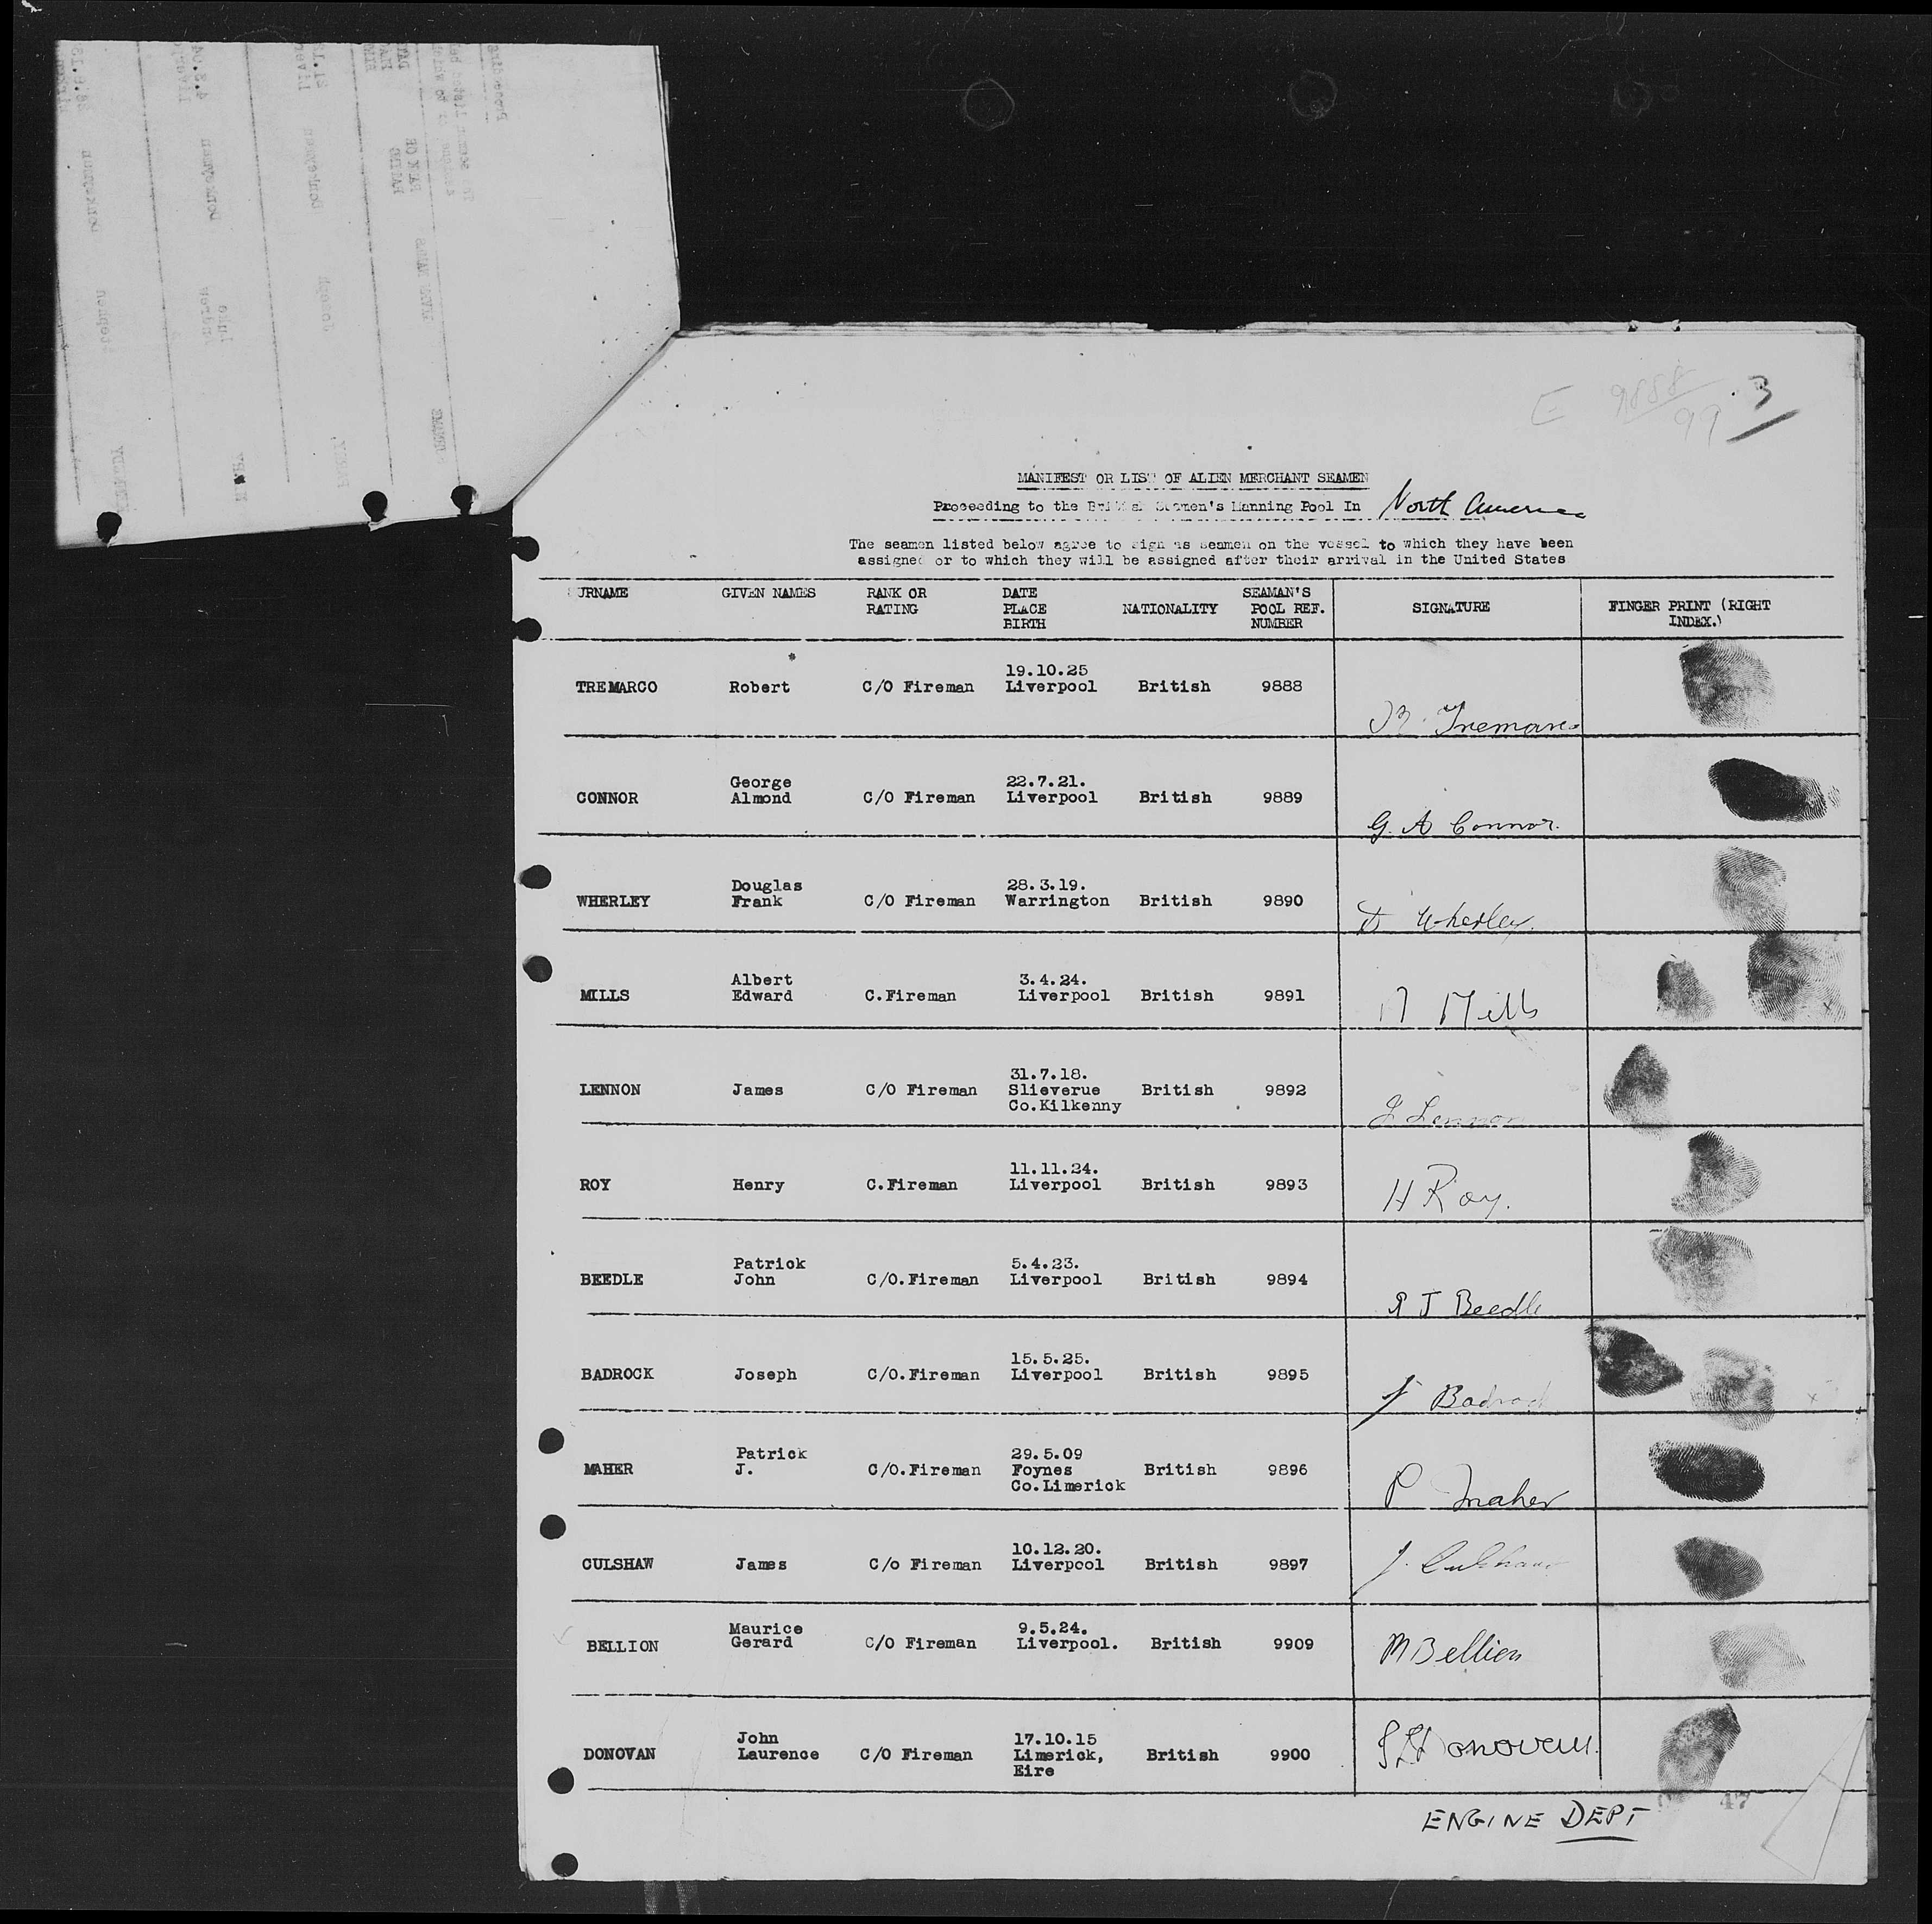 E 9888 3
99
MANIFEST OR LIST OF ALIEN MERCHANT SEAMEN
Proceeding to the British Seamen's Manning Pool In North America
The seamen listed below agree to sign as seamen on the vessel to which they have been
assigned or to which they will be assigned after their arrival in the United States
SURNAME GIVEN NAMES RANK OR RATING DATE PLACE BIRTH NATIONALITY SEAMAN'S POOL REF. NUMBER SIGNATURE FINGER PRINT (RIGHT INDEX.)
TREMARCO Robert C/O Fireman 19.10.25 Liverpool British 9888 R. Tremarco
CONNOR George Almond C/O Fireman 22.7.21. Liverpool British 9889 G. A Connor.
WHERLEY Douglas Frank C/O Fireman 28.3.19. Warrington British 9890 D Wherley.
MILLS Albert Edward C.Fireman 3.4.24. Liverpool British 9891 A Mills
LENNON James C/O Fireman 31.7.18. Slieverue Co.Kilkenny British 9892 J Lennon
ROY Henry C.Fireman 11.11.24. Liverpool British 9893 H Roy.
BEEDLE Patrick John C/O.Fireman 5.4.23. Liverpool British 9894 P J Beedle
BADROCK Joseph C/O.Fireman 15.5.25. Liverpool British 9895 J Badrock
MAHER Patrick J. C/O.Fireman 29.5.09 Foynes Co.Limerick British 9896 P Maher
CULSHAW James C/o Fireman 10.12.20. Liverpool British 9897 J. Culshaw
BELLION Maurice Gerard C/O Fireman 9.5.24. Liverpool. British 9909 M Bellion
DONOVAN John Laurence C/O Fireman 17.10.15 Limerick, Eire British 9900 J L Donovan.
ENGINE DEPT
47